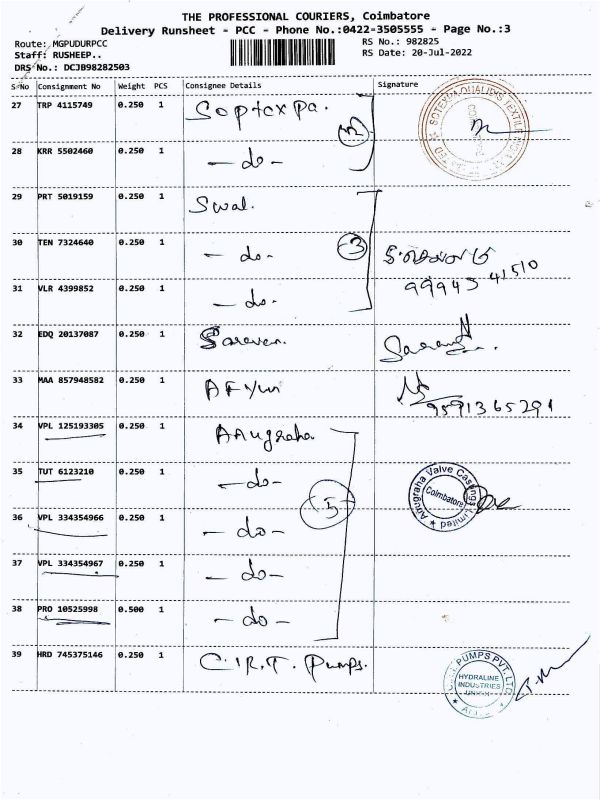 THE PROFESSIONAL COURIERS, Coimbatore
Delivery Runsheet - PCC - Phone No.:0422-3505555 - Page No.:3
Route: MGPUDURPCC
RS No.: 982825
Staff: RUSHEEP..
RS Date: 20-Jul-2022
DRS No.: DCJB98282503
S.No Consignment No Weight PCS Consignee Details Signature
27 TRP 4115749 0.250 1 Soptexpa.
28 KRR 5502460 0.250 1 - do -
29 PRT 5019159 0.250 1 Swal.
30 TEN 7324640 0.250 1 - do - 3
99943 41510
31 VLR 4399852 0.250 1 - do -
32 EDQ 20137087 0.250 1 Saravan.
33 MAA 857948582 0.250 1
9591365291
34 VPL 125193305 0.250 1 Anugraha
35 TUT 6123210 0.250 1 - do - 5
Anugraha Valve Castings Limited
Coimbatore
36 VPL 334354966 0.250 1 - do -
37 VPL 334354967 0.250 1 - do -
38 PRO 10525998 0.500 1 - do -
39 HRD 745375146 0.250 1 C.I.R.T. Pumps.
PUMPS PVT. LTD.
HYDRALINE
INDUSTRIES